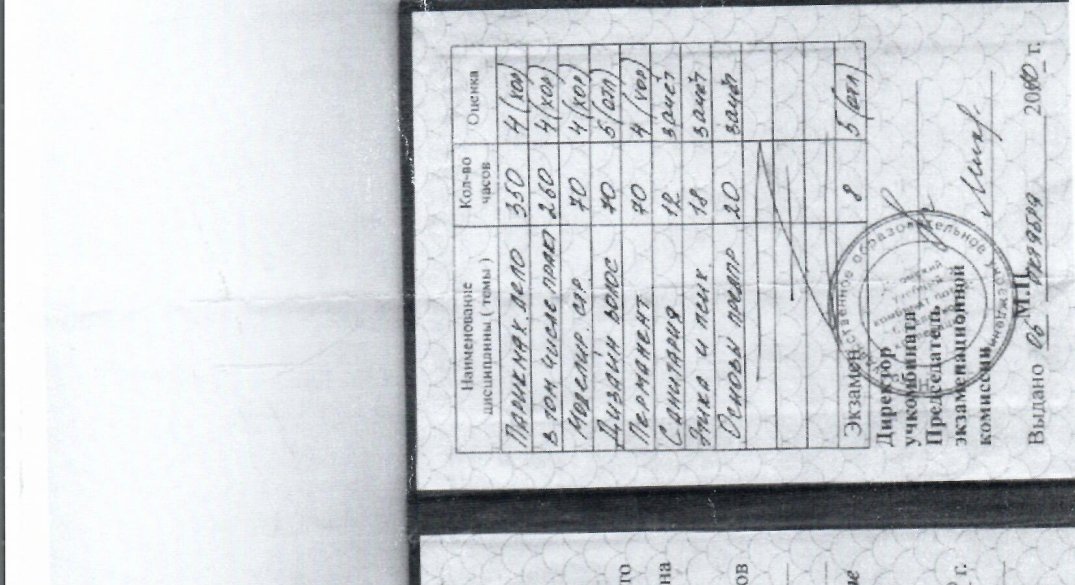 Наименование дисциплины ( темы ) Кол-во часов Оценка
Парикмах. дело 350 4 (хор)
в том числе практ 260 4 (хор)
Моделир. 70 4 (хор)
Дизайн волос 70 5 (отл)
Перманент 70 4 (хор)
Санитария 12 зачёт
Этика и псих 18 зачёт
Основы предпр 20 зачёт
Экзамен 8 5 (отл)
Директор
учкомбината
Председатель
экзаменационной
комиссии
М.П.
Выдано 06 октября 2010 г.
го
на
ов
г.